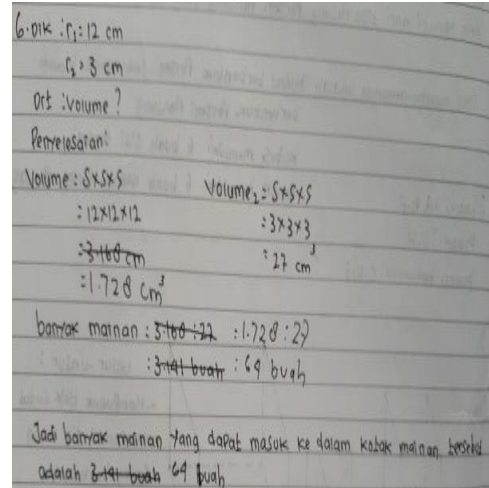 6. Dik : r₁ = 12 cm
r₂ = 3 cm
Dit : Volume ?
Penyelesaian:
Volume : S×S×S Volume₂ = S×S×S
: 12×12×12 : 3×3×3
: 3.168 cm : 27 cm³
: 1.728 cm³
banyak mainan : 3.168 : 27 : 1.728 : 27
: 3.141 buah : 64 buah
Jadi banyak mainan yang dapat masuk ke dalam kotak mainan tersebut
adalah 3.141 buah 64 buah